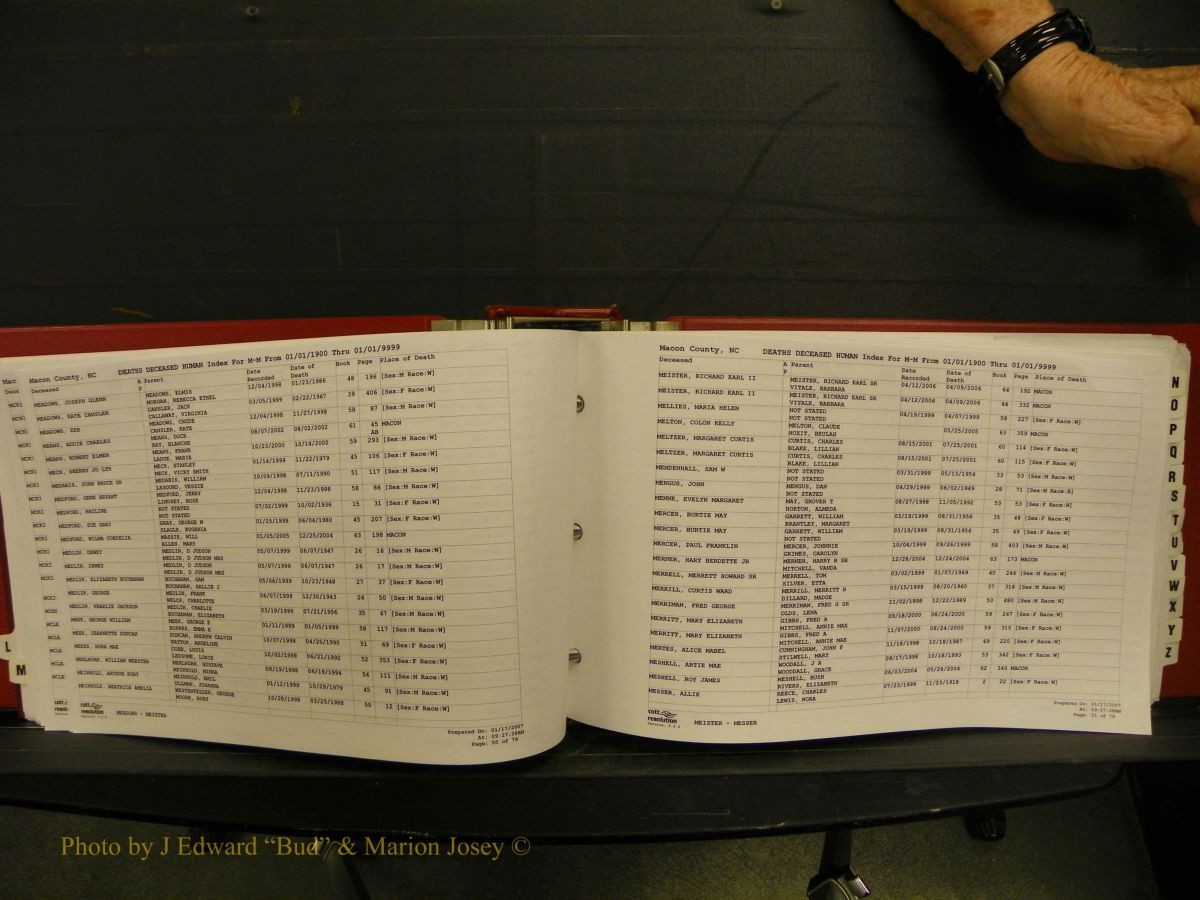 Macon County, NC DEATHS DECEASED HUMAN Index For M-M From 01/01/1900 Thru 01/01/9999
Deceased A Parent Date Recorded Date of Death Book Page Place of Death
MEADOWS, JOSEPH GLENN MEADOWS, ELMIS 12/04/1998 01/23/1986 48 196 [Sex:M Race:W]
MORGAN, REBECCA ETHEL
MEADOWS, KATE CANSLER CANSLER, JACK 03/05/1999 02/22/1967 39 406 [Sex:F Race:W]
CALLAWAY, VIRGINIA
MEADOWS, ZEB MEADOWS, CRUDE 12/04/1998 11/27/1998 58 87 [Sex:M Race:W]
CANSLER, KATE
MEANS, ADDIE CHARLES MEANS, DOCK 08/07/2002 08/02/2002 61 45 MACON
RAY, BLANCHE
MEANS, ROBERT ELMER MEANS, FRANK 10/23/2000 10/14/2000 59 293 [Sex:M Race:W]
LADUE, MARIE
MECH, SHERRY JO LYN MECH, STANLEY 01/14/1999 11/22/1979 45 106 [Sex:F Race:W]
MECH, VICKY SMITH
MEDARIS, JOHN BRUCE SR MEDARIS, WILLIAM 10/09/1998 07/11/1990 51 117 [Sex:M Race:W]
LESOURD, VESSIE
MEDFORD, GENE BRYANT MEDFORD, JERRY 12/04/1998 11/23/1998 58 86 [Sex:M Race:W]
LINDSEY, ROSE
MEDFORD, PAULINE NOT STATED 07/02/1999 10/02/1936 15 31 [Sex:F Race:W]
NOT STATED
MEDFORD, SUE GRAY GRAY, GEORGE W 01/15/1999 06/04/1980 45 207 [Sex:F Race:W]
SLAGLE, EUGENIA
MEDFORD, WILMA CORDELIA MASSIE, WILL 01/05/2005 12/25/2004 63 198 MACON
ALLEN, MARY
MEDLIN, DEWEY MEDLIN, D JUDSON 05/07/1999 06/07/1947 26 16 [Sex:M Race:W]
MEDLIN, D JUDSON MRS
MEDLIN, DEWEY MEDLIN, D JUDSON 05/07/1999 06/07/1947 26 17 [Sex:M Race:W]
MEDLIN, D JUDSON MRS
MEDLIN, ELIZABETH BUCHANAN BUCHANAN, SAM 05/06/1999 10/23/1948 27 37 [Sex:F Race:W]
BUCHANAN, HALLIE J
MEDLIN, GEORGE MEDLIN, FRANK 06/07/1999 12/30/1943 24 50 [Sex:M Race:W]
WELCH, CHARLOTTE
MEDLIN, PEARLIE JACKSON MEDLIN, CHARLIE 03/19/1999 07/21/1956 35 47 [Sex:M Race:W]
BUCHANAN, ELIZABETH
MEER, GEORGE WILLIAM MEER, GEORGE E 01/11/1999 01/05/1999 58 117 [Sex:M Race:W]
HOPPER, EMMA E
MEER, JEANNETTE DUNCAN DUNCAN, ANDREW CALVIN 10/07/1998 04/25/1990 51 69 [Sex:F Race:W]
PATTON, ANGELINE
MEEKS, NORA MAE COBB, LOUIS 10/02/1998 06/21/1992 52 353 [Sex:F Race:W]
LEDSOME, LONIE
MEHLHORE, WILLIAM WEBSTER MEHLHORE, GUSTAVE 08/19/1998 06/19/1994 54 111 [Sex:M Race:W]
REINHOLD, MINNA
MEINHOLD, ARTHUR KURT MEINHOLD, EMIL 01/12/1999 10/29/1979 45 91 [Sex:M Race:W]
ULLMAN, JOHANNA
MEINHOLD, BEATRICE AMELIA WESTENFELDER, GEORGE 10/28/1998 03/25/1988 50 12 [Sex:F Race:W]
MOORE, RUBY
cott resolution
MEADOWS - MEISTER
Prepared On: 01/17/2007
At: 09:27:28AM
Page: 50 of 79
Macon County, NC DEATHS DECEASED HUMAN Index For M-M From 01/01/1900 Thru 01/01/9999
Deceased A Parent Date Recorded Date of Death Book Page Place of Death
MEISTER, RICHARD EARL II MEISTER, RICHARD EARL SR 04/12/2006 04/09/2006 64 192 MACON
VITALE, BARBARA
MEISTER, RICHARD EARL II MEISTER, RICHARD EARL SR 04/12/2006 04/09/2006 64 332 MACON
VITALE, BARBARA
MELLIES, MARIA HELEN NOT STATED 04/19/1999 04/07/1999 58 227 [Sex:F Race:W]
NOT STATED
MELTON, COLON KELLY MELTON, CLAUDE 05/25/2005 63 359 MACON
HOXIT, BEULAH
MELTZER, MARGARET CURTIS CURTIS, CHARLES 08/15/2001 07/25/2001 60 114 [Sex:F Race:W]
BLAKE, LILLIAN
MELTZER, MARGARET CURTIS CURTIS, CHARLES 08/15/2001 07/25/2001 60 115 [Sex:F Race:W]
BLAKE, LILLIAN
MENDENHALL, SAM W NOT STATED 03/31/1999 05/13/1954 33 53 [Sex:M Race:W]
NOT STATED
MENGUS, JOHN MENGUS, DAN 04/29/1999 06/02/1949 28 71 [Sex:M Race:B]
NOT STATED
MENNE, EVELYN MARGARET MAY, GROVER T 08/27/1998 11/05/1992 53 53 [Sex:F Race:W]
HORTON, ALMEDA
MERCER, BURTIE MAY GARRETT, WILLIAM 03/19/1999 08/31/1956 35 48 [Sex:F Race:W]
BRAMTLEY, MARGARET
MERCER, BURTIE MAY GARRETT, WILLIAM 03/19/1999 08/31/1956 35 49 [Sex:F Race:W]
NOT STATED
MERCER, PAUL FRANKLIN MERCER, JOHNNIE 10/04/1999 09/26/1999 58 403 [Sex:M Race:W]
GRIMES, CAROLYN
MERNER, HARY BERDETTE JR MERNER, HARRY B SR 12/28/2004 12/24/2004 63 173 MACON
MITCHELL, VANDA
MERRELL, MERRETT HOWARD SR MERRELL, TOM 03/02/1999 01/07/1969 40 246 [Sex:M Race:W]
SILVER, ETTA
MERRILL, CURTIS WARD MERRILL, MERRITT H 03/15/1999 08/20/1960 37 316 [Sex:M Race:W]
DILLARD, MADGE
MERRIMAN, FRED GEORGE MERRIMAN, FRED G SR 11/02/1998 12/22/1989 50 480 [Sex:M Race:W]
OLDS, LENA
MERRITT, MARY ELIZABETH GIBBS, FRED A 09/18/2000 08/24/2000 59 267 [Sex:F Race:W]
MITCHELL, ANNIE MAE
MERRITT, MARY ELIZABETH GIBBS, FRED A 11/07/2000 08/24/2000 59 315 [Sex:F Race:W]
MITCHELL, ANNIE MAE
MERTES, ALICE MABEL CUNNINGHAM, JOHN F 11/18/1998 10/18/1987 49 220 [Sex:F Race:W]
STILWELL, MARY
MESHELL, ARTIE MAE WOODALL, J A 09/17/1998 10/18/1993 53 342 [Sex:F Race:W]
WOODALL, GRACE
MESHELL, ROY JAMES MESHELL, BUSH 06/03/2004 05/26/2004 62 340 MACON
RIVERS, ELIZABETH
MESSER, ALLIE REECE, CHARLES 07/23/1999 11/23/1918 2 22 [Sex:F Race:W]
LEWIS, NORA
cott resolution
MEISTER - MESSER
Prepared On: 01/17/2007
At: 09:27:28AM
Page: 51 of 79
L
M
N
O
P
Q
R
S
T
U
V
W
X
Y
Z
Photo by J Edward “Bud” & Marion Josey ©